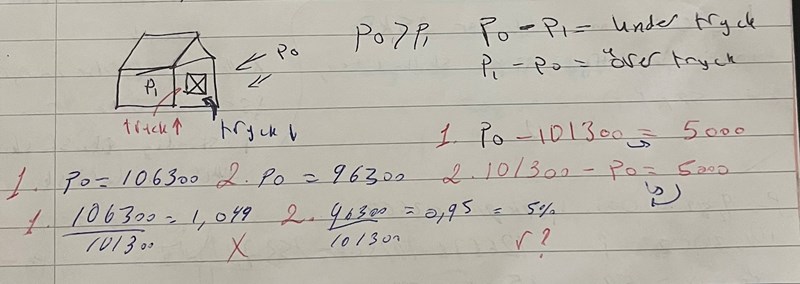 P0 > P1 P0 - P1 = Under tryck
P1 - P0 = över tryck
P0
P1
tryck ↑ tryck ↓
1. P0 - 101300 = 5000
1. P0 = 106300 2. P0 = 96300 2. 101300 - P0 = 5000
1. 106300/101300 = 1,049 X 2. 96300/101300 = 0,95 = 5% √ ?